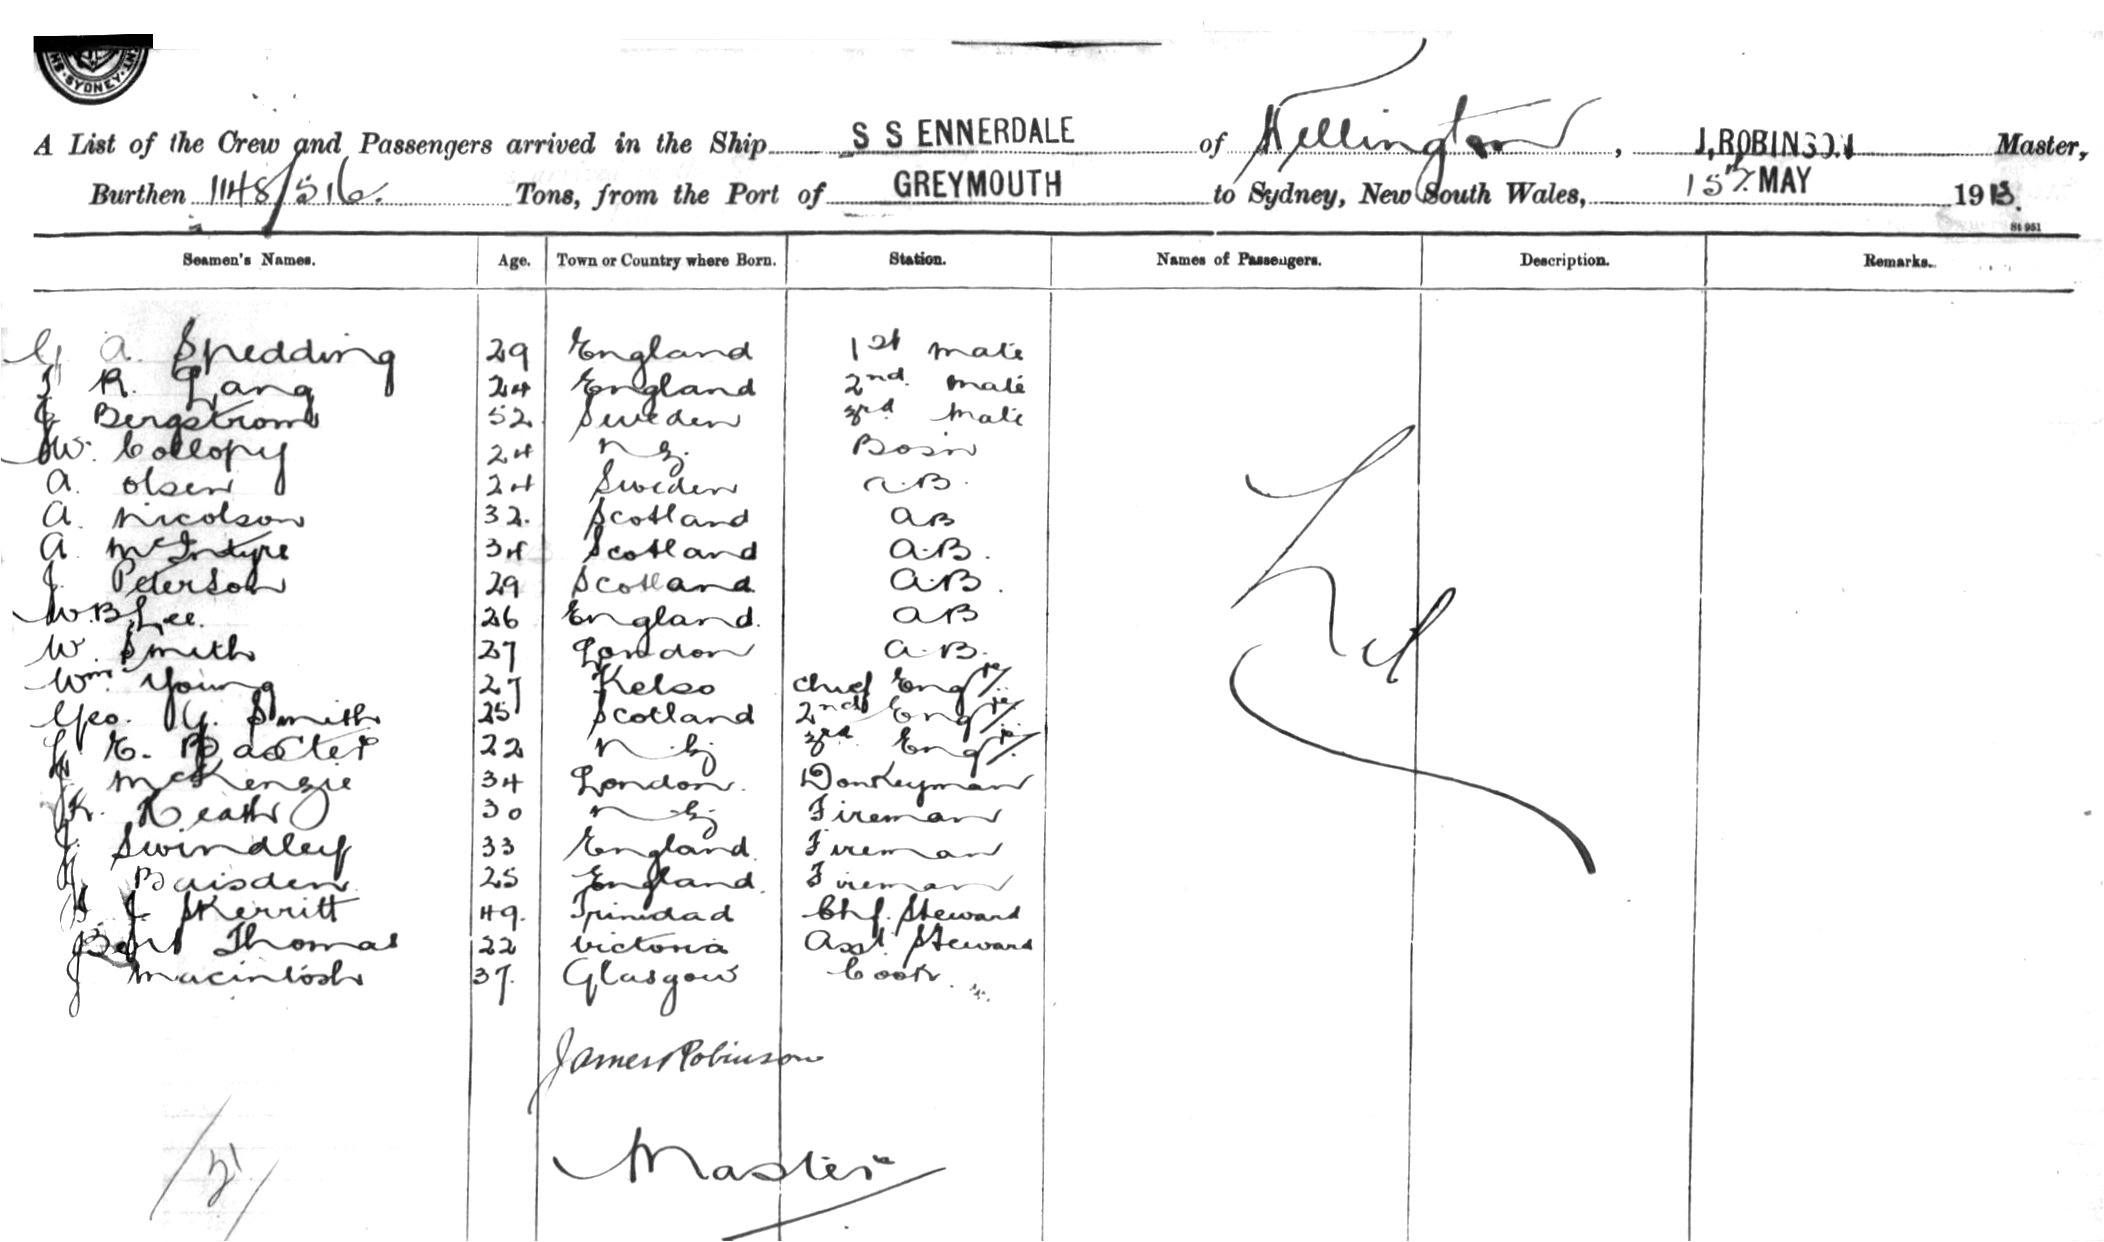 SYDNEY
A List of the Crew and Passengers arrived in the Ship S S ENNERDALE of Wellington, J. ROBINSON Master,
Burthen 1148/516. Tons, from the Port of GREYMOUTH to Sydney, New South Wales, 15th MAY 1913.
St 951
Seamen's Names. Age. Town or Country where Born. Station. Names of Passengers. Description. Remarks.
G A. Spedding 29 England 1st mate
J R. Lang 24 England 2nd. mate
Bergstrom 52 Sweden 3rd mate
W. Collopy 24 N Z. Bosin
A. Olsen 24 Sweden A.B.
A. Nicolson 32. Scotland AB
A. McIntyre 34 Scotland A.B.
J. Peterson 29 Scotland A.B.
W.B. Lee. 26 England. AB
W. Smith 27 London A.B.
Wm. Young 27 Kelso Chief Engr
Geo. Y. Smith 25 Scotland 2nd Engr
E. Baxter 22 N.Z 3rd Engr
McKenzie 34 London. Donkeyman
K. Heath 30 N Z Fireman
J. Swindley 33 England. Fireman
Baisden 25 England. Fireman
J. Skerritt 49. Trinidad Chf. Steward
Thomas 22 Victoria Asst Steward
J Macintosh 37. Glasgow Cook.
Nil
James Robinson
Master
21